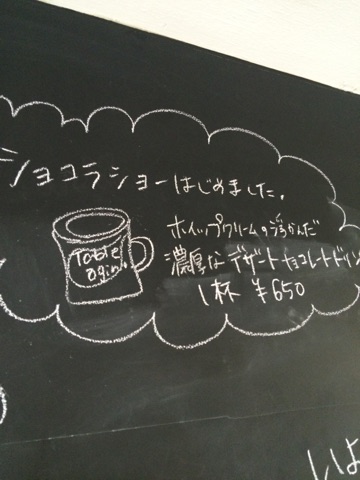 ショコラショーはじめました。
ホイップクリームのうかんだ
濃厚なデザートチョコレートドリン
1杯 ¥650
Table
ogino
いよ